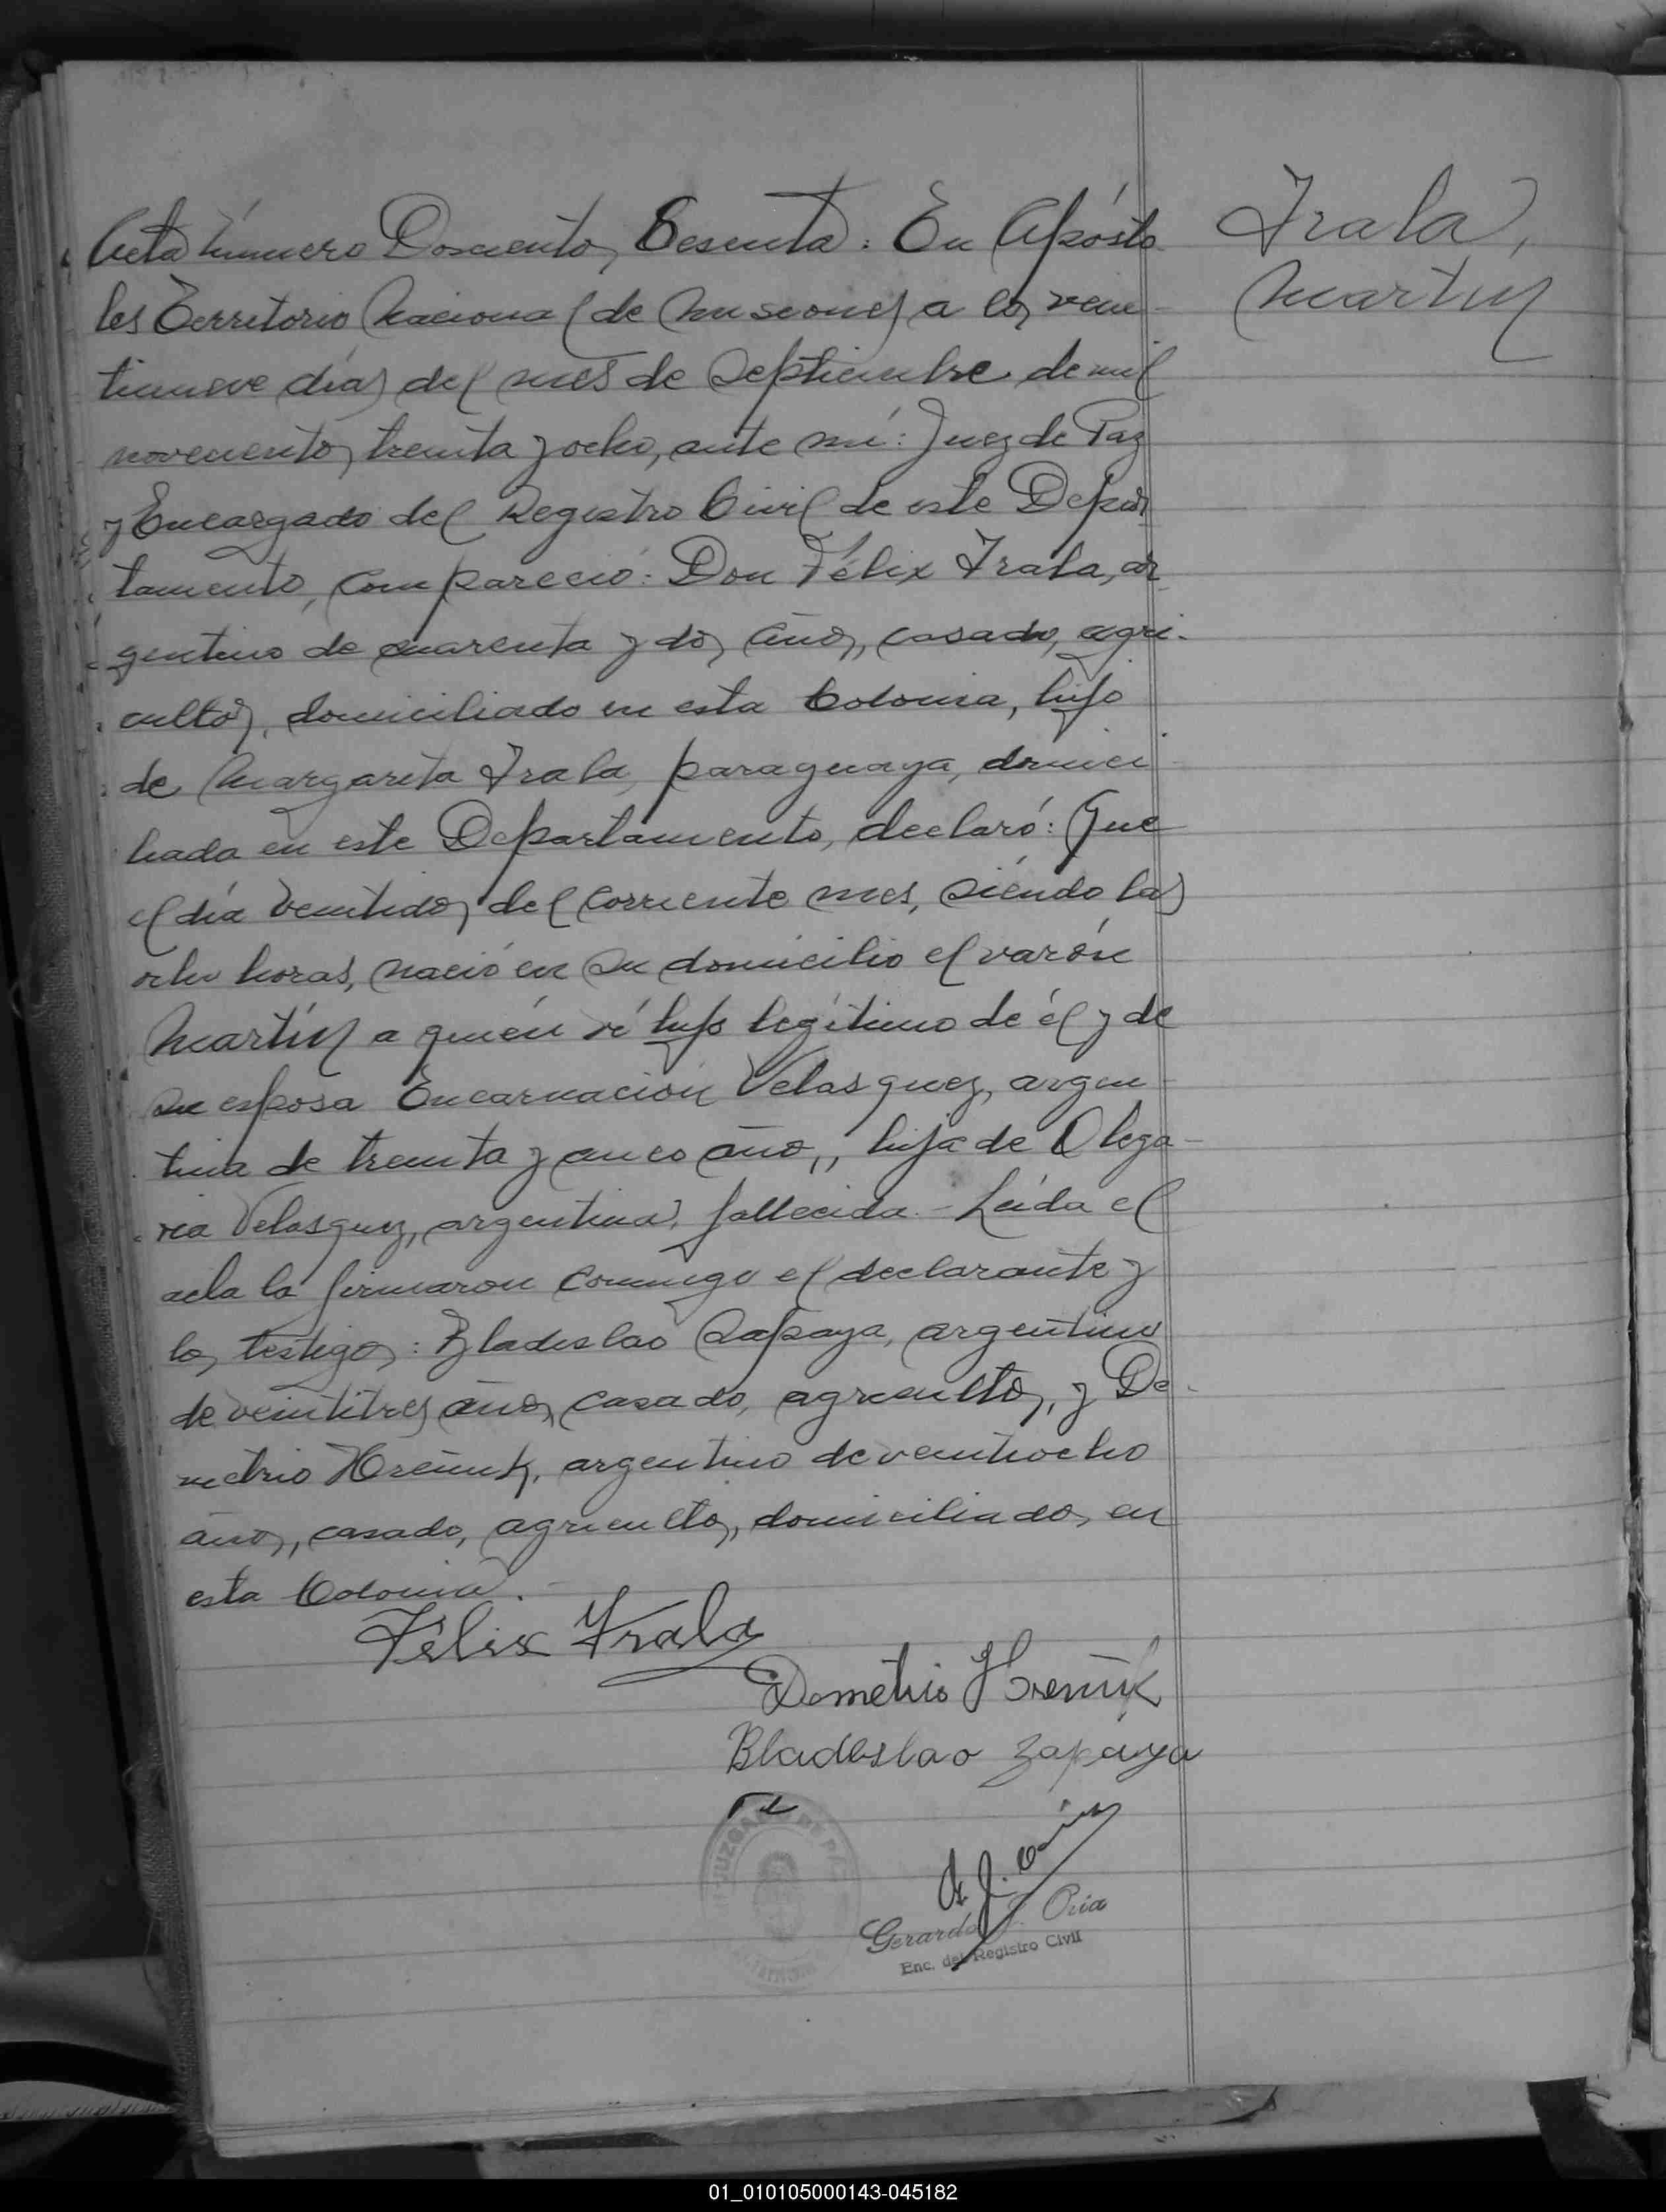 Irala,
Martín
Acta número Doscientos Sesenta: En Apósto
les Territorio Nacional de Misiones a los vein
tinueve días del mes de Septiembre de mil
novecientos treinta y ocho, ante mí: Juez de Paz
y Encargado del Registro Civil de este Depar
tamento, compareció: Don Félix Irala, ar
gentino de cuarenta y dos años, casado, agri-
cultor, domiciliado en esta Colonia, hijo
de Margarita Irala, paraguaya, domici
liada en este Departamento, declaró: Que
el día veintidos del corriente mes, siéndo las
ocho horas, nació en su domicilio el varón
Martín a quién ví hijo legítimo de él y de
su esposa Encarnación Velasquez, argen
tina de treinta y cinco años, hija de Olega-
ria Velasquez, argentina, fallecida.- Leída el
acta la firmaron conmigo el declarante y
los testigos: Bladislao Sapaya, argentino
de veintitres años, casado, agricultor, y De-
metrio Hreñuk, argentino de veintiocho
años, casado, agricultor, domiciliados en
esta Colonia.
Félix Irala
Demetrio Hreñuk
Bladislao Zapaya
JUZGADO DE PAZ
Gerardo J. Oria
Enc. del Registro Civil
01_010105000143-045182